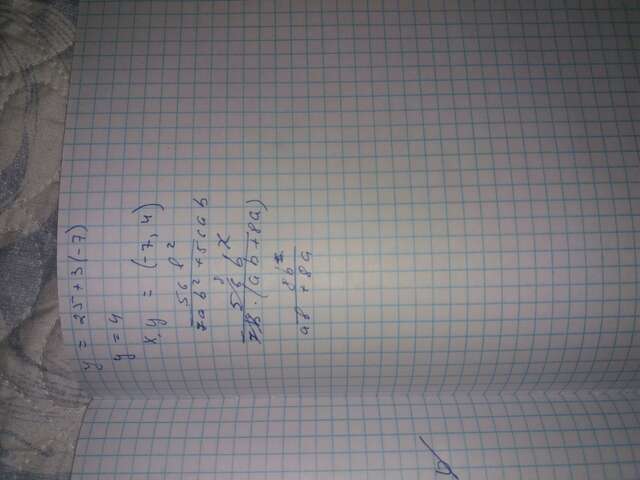 y = 25 + 3(-7)
y = 4
x, y = (-7, 4)
56 b²
7ab² + 56ab
8
56 b
7b · (ab + 8a)
8b
ab + 8a